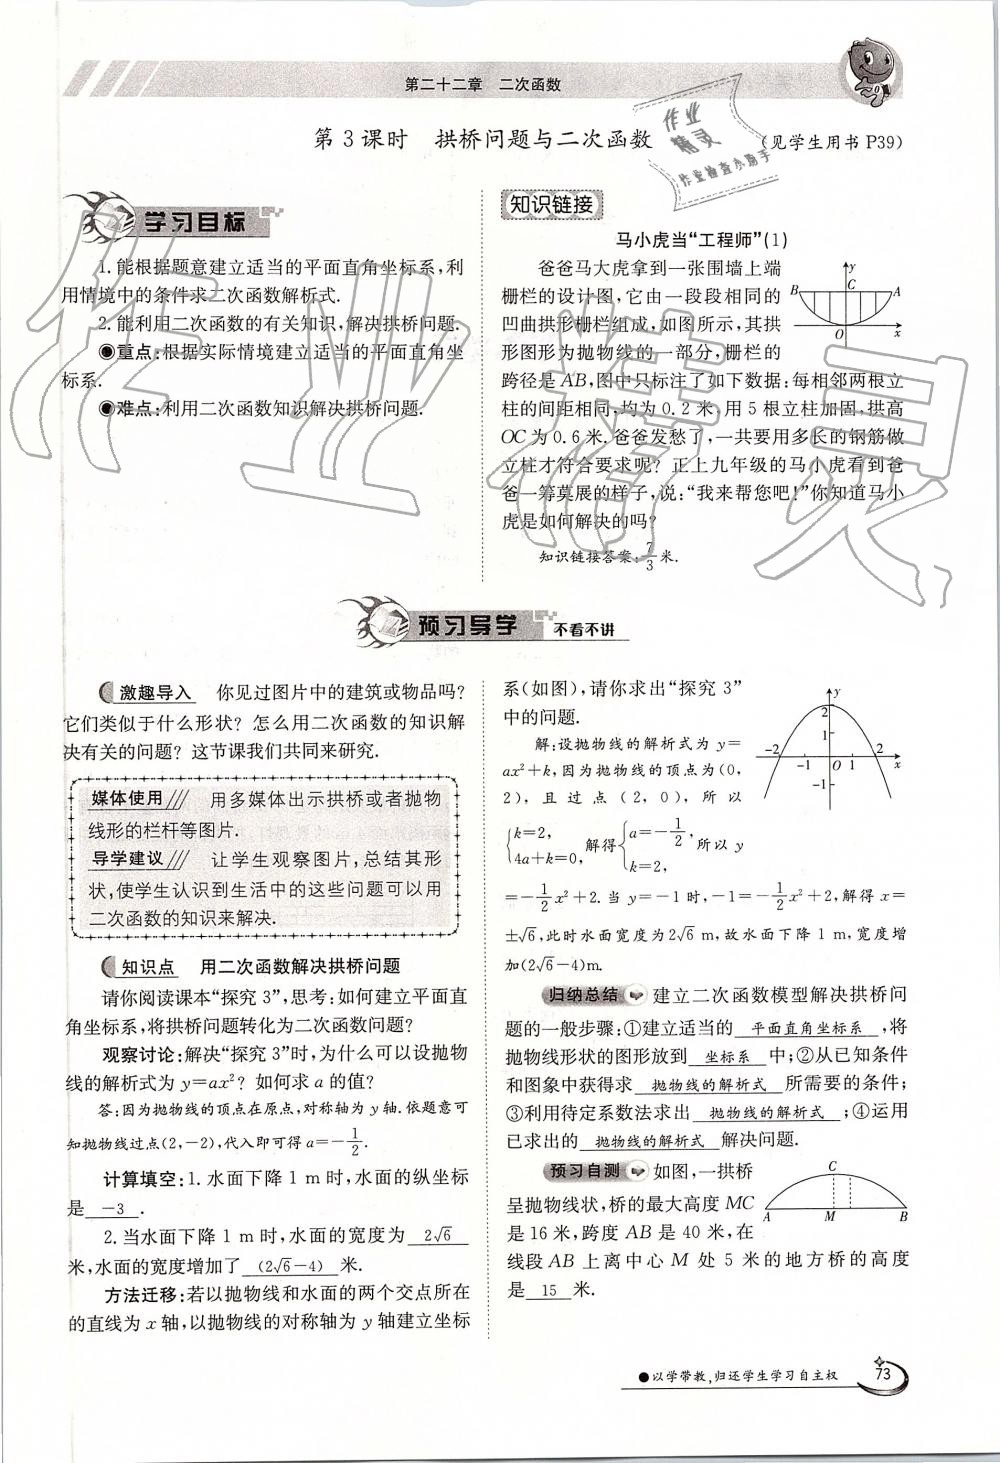 第二十二章 二次函数
第3课时 拱桥问题与二次函数
(见学生用书 P39)
作业
精灵
作业检查小助手
学习目标
1.能根据题意建立适当的平面直角坐标系,利
用情境中的条件求二次函数解析式.
2.能利用二次函数的有关知识,解决拱桥问题.
◉重点:根据实际情境建立适当的平面直角坐
标系.
◉难点:利用二次函数知识解决拱桥问题.
知识链接
马小虎当“工程师”(1)
爸爸马大虎拿到一张围墙上端
栅栏的设计图,它由一段段相同的
凹曲拱形栅栏组成,如图所示,其拱
形图形为抛物线的一部分,栅栏的
跨径是AB,图中只标注了如下数据:每相邻两根立
柱的间距相同,均为0.2米,用5根立柱加固,拱高
OC为0.6米.爸爸发愁了,一共要用多长的钢筋做
立柱才符合要求呢?正上九年级的马小虎看到爸
爸一筹莫展的样子,说:“我来帮您吧!”你知道马小
虎是如何解决的吗?
知识链接答案:7/3米.
y
B C A
O x
作业精灵
预习导学 不看不讲
激趣导入 你见过图片中的建筑或物品吗?
它们类似于什么形状?怎么用二次函数的知识解
决有关的问题?这节课我们共同来研究.
媒体使用 用多媒体出示拱桥或者抛物
线形的栏杆等图片.
导学建议 让学生观察图片,总结其形
状,使学生认识到生活中的这些问题可以用
二次函数的知识来解决.
知识点 用二次函数解决拱桥问题
请你阅读课本“探究3”,思考:如何建立平面直
角坐标系,将拱桥问题转化为二次函数问题?
观察讨论:解决“探究3”时,为什么可以设抛物
线的解析式为y=ax²?如何求a的值?
答:因为抛物线的顶点在原点,对称轴为y轴.依题意可
知抛物线过点(2,-2),代入即可得a=-1/2.
计算填空:1.水面下降1 m时,水面的纵坐标
是 -3 .
2.当水面下降1 m时,水面的宽度为 2√6
米,水面的宽度增加了 (2√6-4) 米.
方法迁移:若以抛物线和水面的两个交点所在
的直线为x轴,以抛物线的对称轴为y轴建立坐标
系(如图),请你求出“探究3”
中的问题.
解:设抛物线的解析式为y=
ax²+k,因为抛物线的顶点为(0,
2),且过点(2,0),所以
{k=2, 4a+k=0, 解得{a=-1/2, k=2, 所以y
=-1/2x²+2.当y=-1时,-1=-1/2x²+2,解得x=
±√6,此时水面宽度为2√6 m,故水面下降1 m,宽度增
加(2√6-4)m.
y
2
1
-2 -1 O 1 2 x
-1
归纳总结 建立二次函数模型解决拱桥问
题的一般步骤:①建立适当的 平面直角坐标系 ,将
抛物线形状的图形放到 坐标系 中;②从已知条件
和图象中获得求 抛物线的解析式 所需要的条件;
③利用待定系数法求出 抛物线的解析式 ;④运用
已求出的 抛物线的解析式 解决问题.
预习自测 如图,一拱桥
呈抛物线状,桥的最大高度MC
是16米,跨度AB是40米,在
线段AB上离中心M处5米的地方桥的高度
是 15 米.
C
A M B
●以学带教,归还学生学习自主权
73